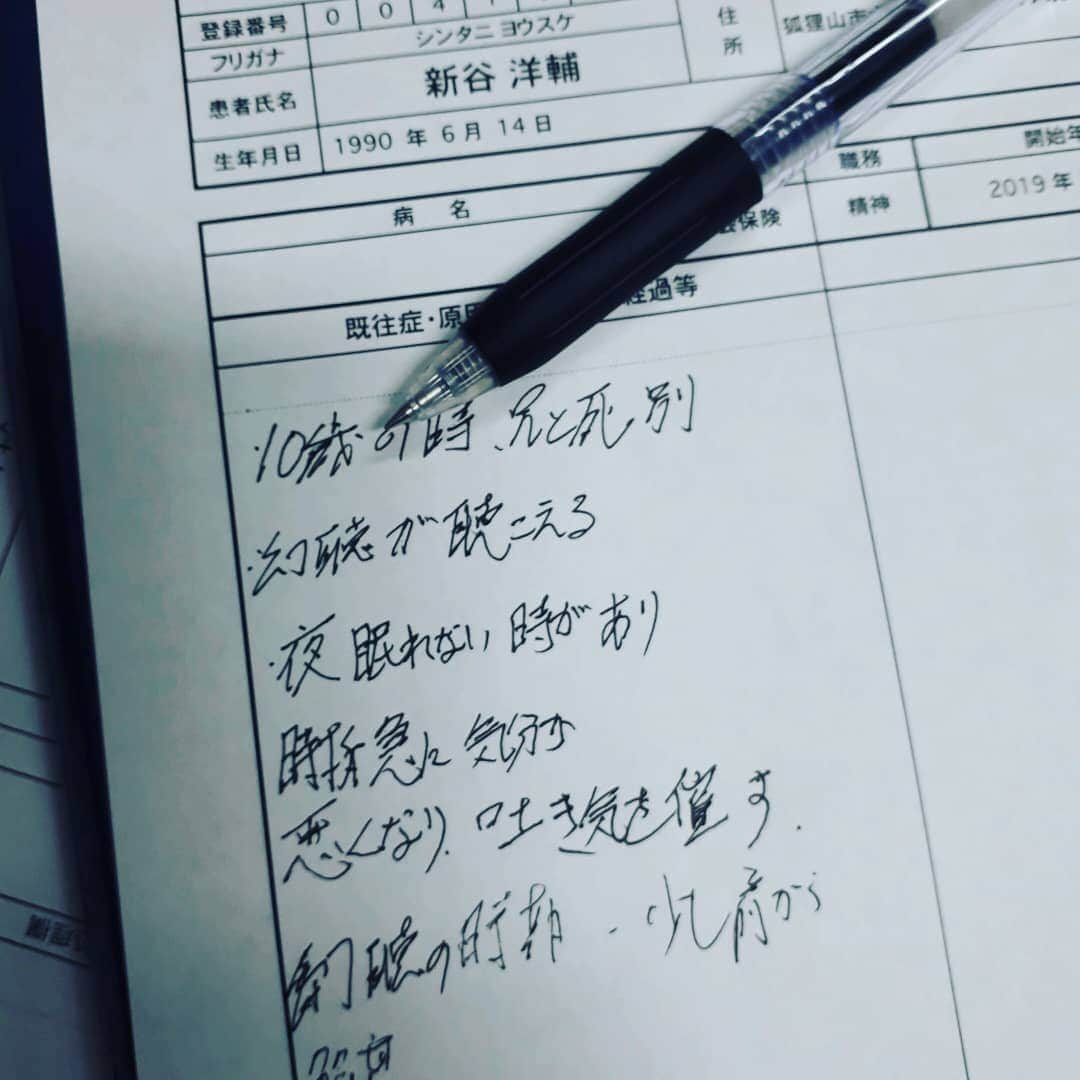 登録番号 0 0 4 1
フリガナ シンタニ ヨウスケ 住所 狐狸山市
患者氏名 新谷 洋輔
生年月日 1990 年 6 月 14 日
職務 開始年
病 名 保険 精神 2019 年
既往症・原 経過等
・10歳の時、兄と死別
・幻聴が聴こえる
・夜眠れない時があり
時折急に気分が
悪くなり、吐き気を催す.
幻聴の時期 - 少し前から